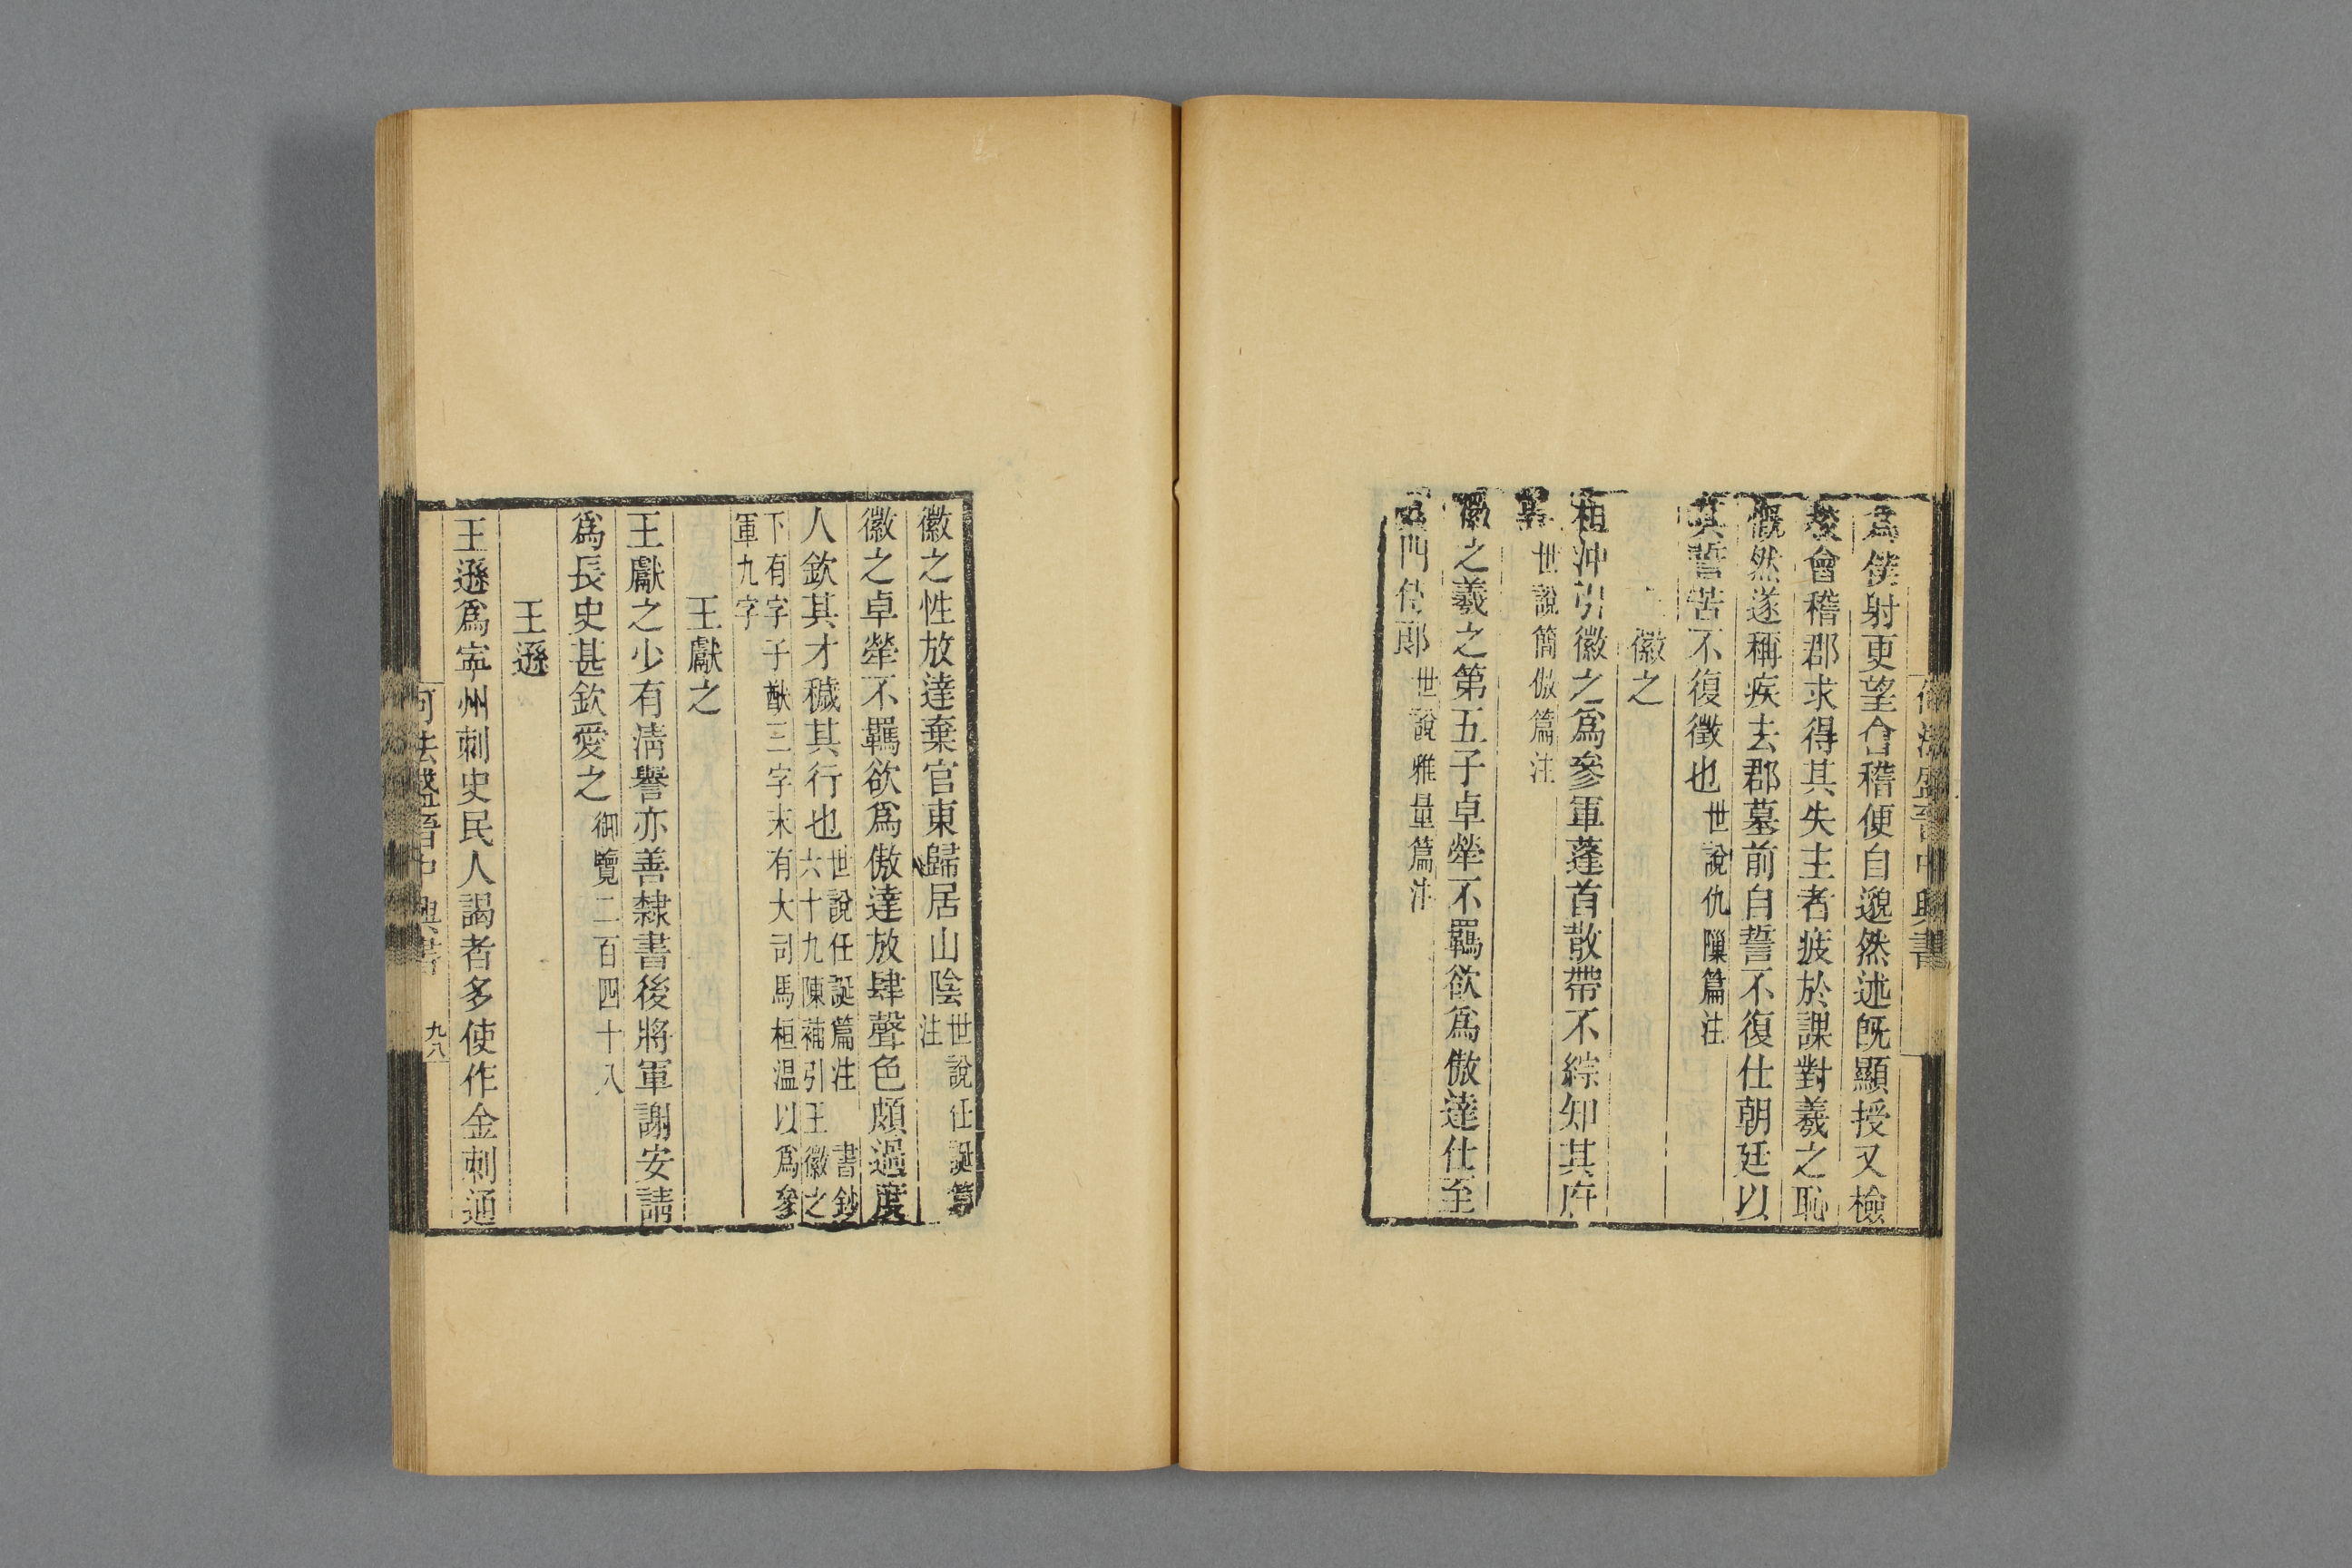 何法盛晉中興書
爲僕射更望會稽便自邈然述旣顯授又檢
挍會稽郡求得其失主者疲於課對羲之恥
慨然遂稱疾去郡墓前自誓不復仕朝廷以
其誓苦不復徵也世說仇隟篇注
徽之
桓沖引徽之爲參軍蓬首散帶不綜知其府
事世說簡傲篇注
徽之羲之第五子卓犖不羈欲爲傲達仕至
黃門侍郎世說雅量篇注
徽之性放達棄官東歸居山陰世說任誕篇注
徽之卓犖不羈欲爲傲達放肆聲色頗過度
人欽其才穢其行也世說任誕篇注 書鈔六十九陳補引王徽之
下有字子猷三字末有大司馬桓温以爲參軍九字
王獻之
王獻之少有淸譽亦善隸書後將軍謝安請
爲長史甚欽愛之御覽二百四十八
王遜
王遜爲寜州刺史民人謁者多使作金刺通
何法盛晉中興書 九八